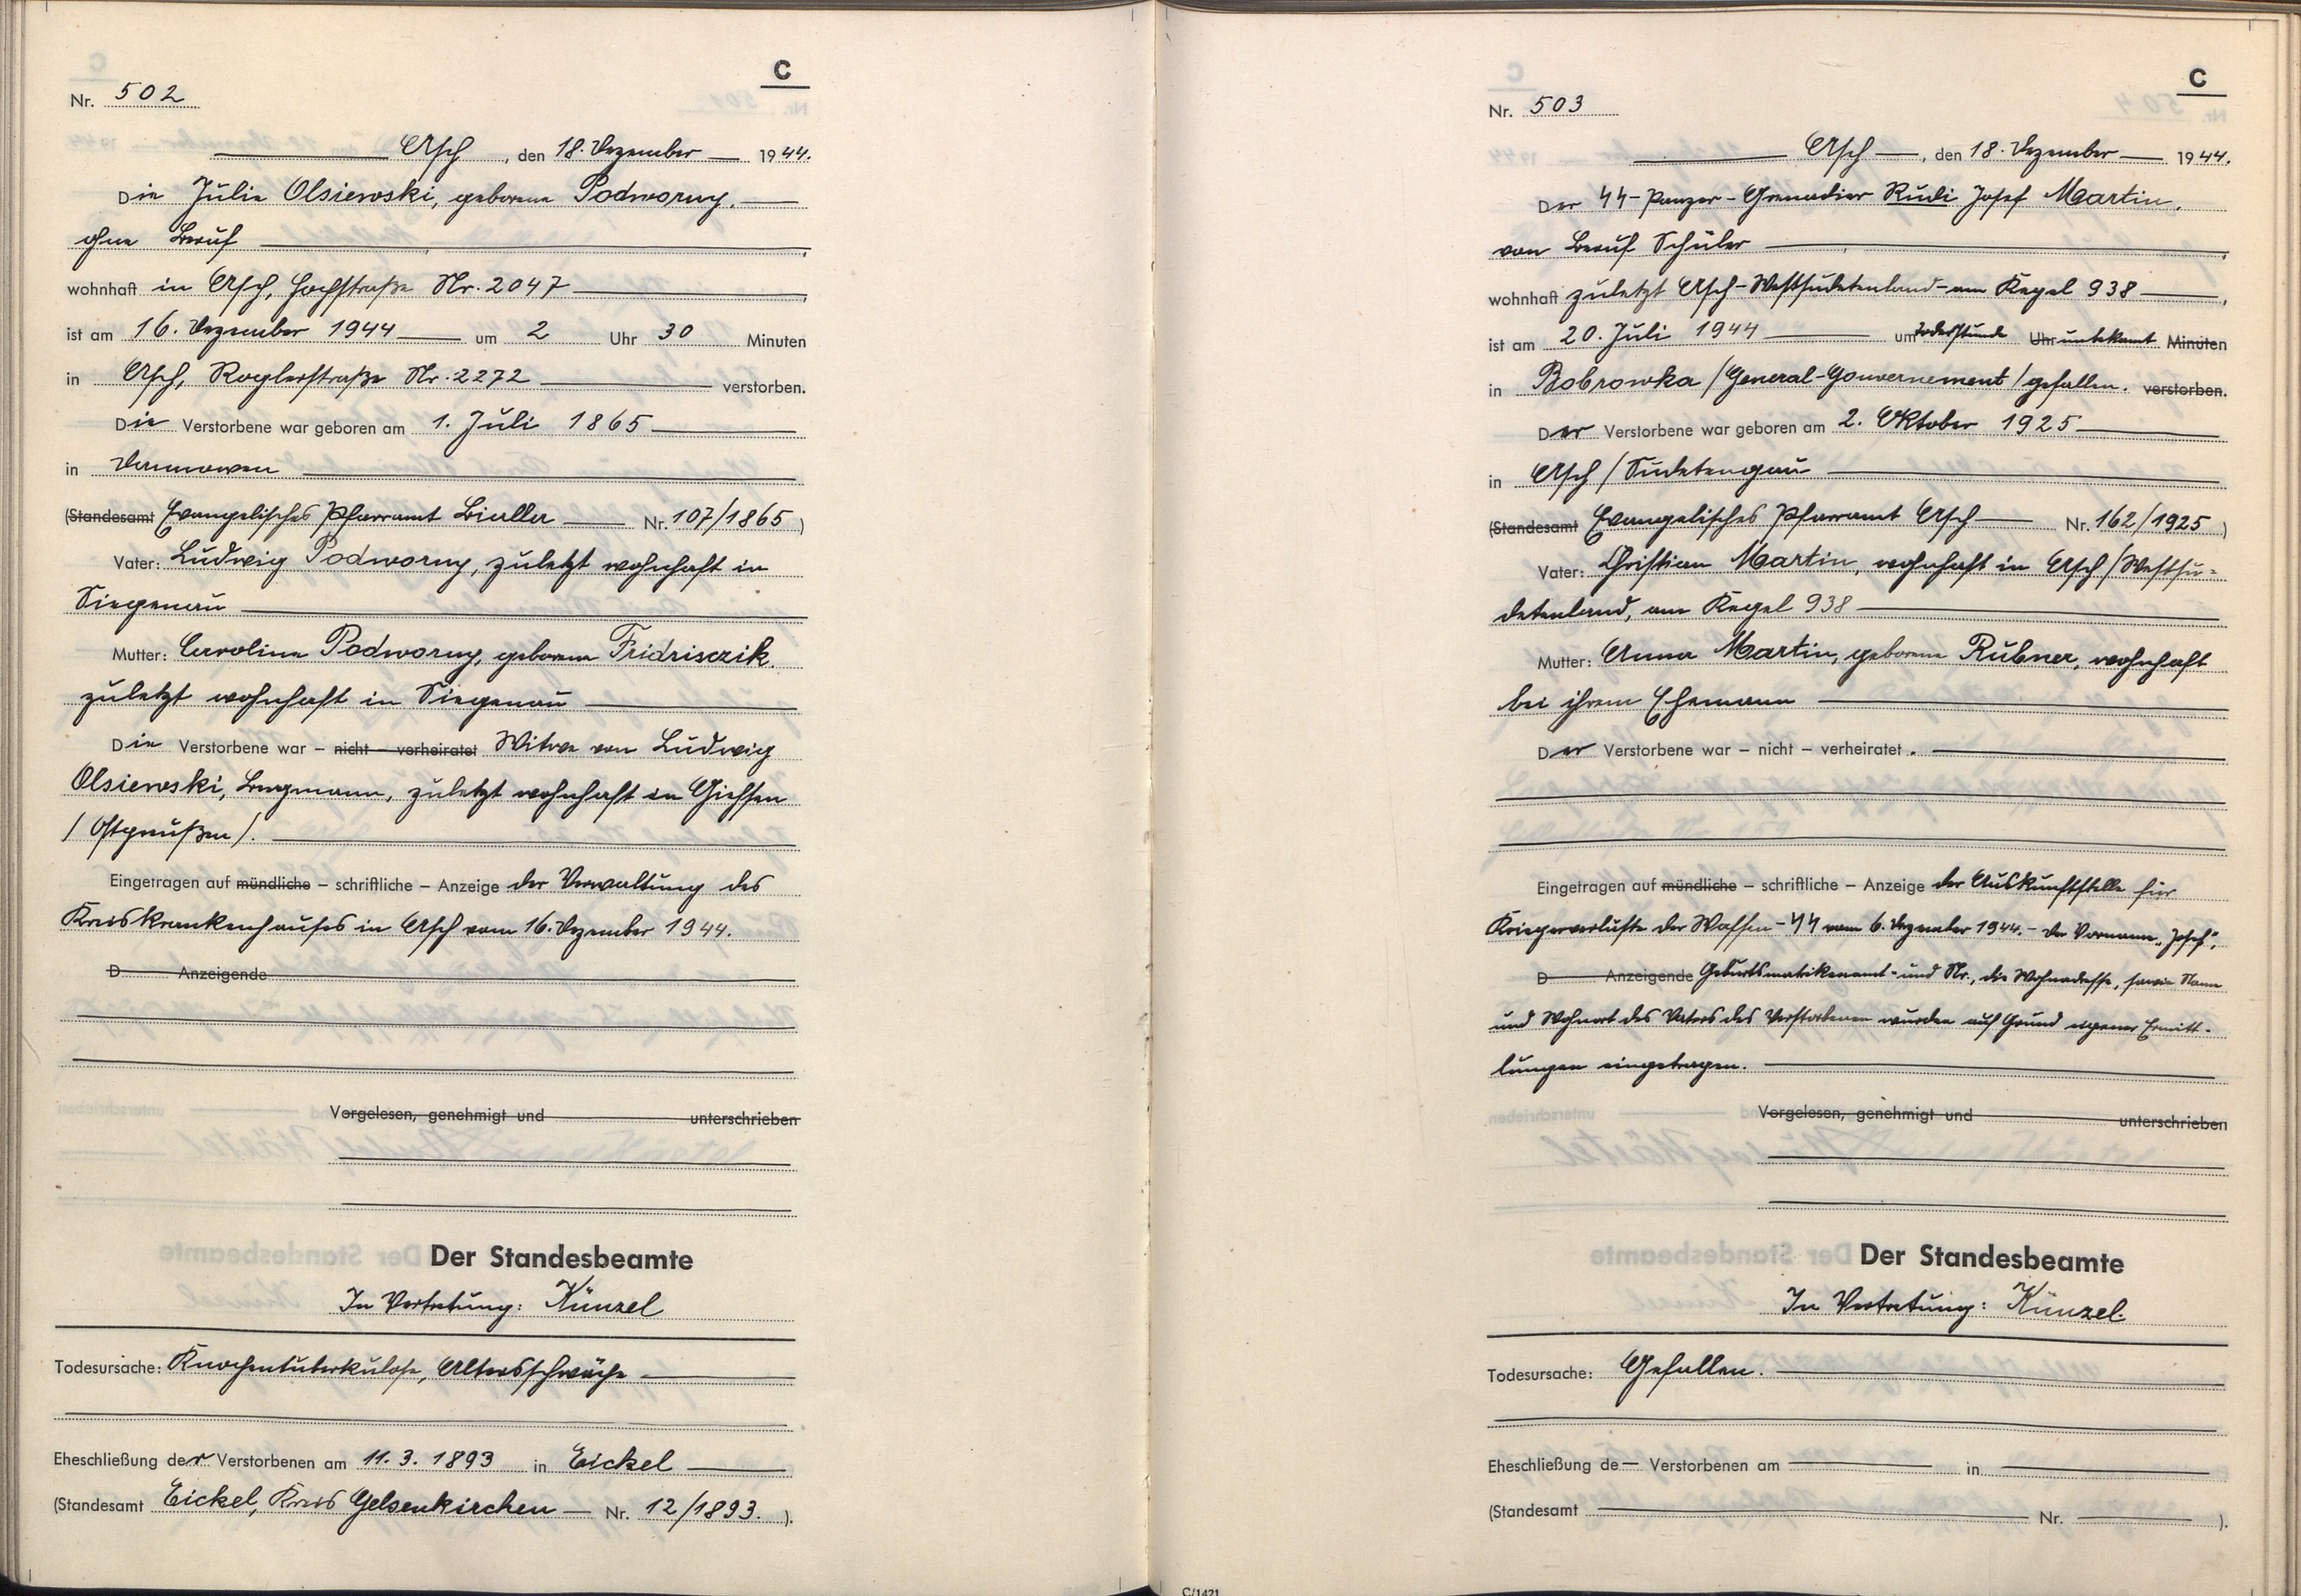 C
Nr. 502
Asch, den 18. Dezember 1944.
Die Julie Olsiewski, geborene Podworny,
ohne Beruf,
wohnhaft in Asch, Hochstraße Nr. 2047,
ist am 16. Dezember 1944 um 2 Uhr 30 Minuten
in Asch, Roglerstraße Nr. 2272 verstorben.
Die Verstorbene war geboren am 1. Juli 1865
in
(Standesamt Evangelisches Pfarramt Bialla Nr. 107/1865)
Vater: Ludwig Podworny, zuletzt wohnhaft in
Siegenau
Mutter: Caroline Podworny, geborene Fridrisczik,
zuletzt wohnhaft in Siegenau
Die Verstorbene war – nicht – verheiratet Witwe von Ludwig
Olsiewski, Bergmann, zuletzt wohnhaft in
/Ostpreußen/.
Eingetragen auf mündliche – schriftliche – Anzeige der Verwaltung des
Kreiskrankenhauses in Asch vom 16. Dezember 1944.
D Anzeigende
Vorgelesen, genehmigt und unterschrieben
Der Standesbeamte
In Vertretung: Künzel
Todesursache: Knochentuberkulose, Altersschwäche
Eheschließung der Verstorbenen am 11. 3. 1893 in Eickel
(Standesamt Eickel, Kreis Gelsenkirchen Nr. 12/1893. ).
C
Nr. 503
Asch, den 18. Dezember 1944.
Der ϟϟ-Panzer-Grenadier Rudi Josef Martin,
von Beruf Schüler,
wohnhaft zuletzt Asch-Westsudetenland-am Kegel 938,
ist am 20. Juli 1944 um Todesstunde Uhr unbekannt Minuten
in Bobrowka /General-Gouvernement/ gefallen. verstorben.
Der Verstorbene war geboren am 2. Oktober 1925
in Asch / Sudetengau
(Standesamt Evangelisches Pfarramt Asch Nr. 162/1925)
Vater: Christian Martin, wohnhaft in Asch / Westsu=
detenland, am Kegel 938
Mutter: Anna Martin, geborene Rubner, wohnhaft
bei ihrem Ehemann
Der Verstorbene war – nicht – verheiratet.
Eingetragen auf mündliche – schriftliche – Anzeige der Auskunftstelle für
Kriegerverluste der Waffen-ϟϟ vom 6. Dezember 1944. – Der Vorname „Josef",
D Anzeigende Geburtsmatrikenamt- und Nr., die Wohnadresse, sowie Name
und Wohnort des Vaters des Verstorbenen wurden auf Grund eigener Ermitt-
lungen eingetragen.
Vorgelesen, genehmigt und unterschrieben
Der Standesbeamte
In Vertretung: Künzel
Todesursache: Gefallen.
Eheschließung de Verstorbenen am in
(Standesamt Nr. ).
C/1421